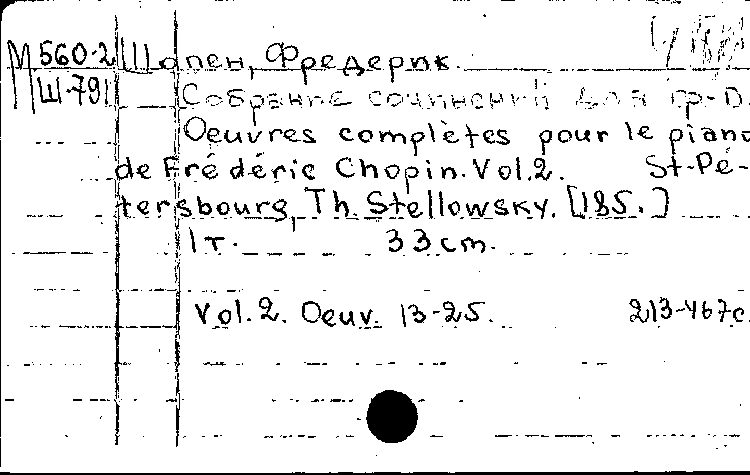 М 560-2 Шопен, Фредерик.
Ш-791 Собрание сочинений для ф-п.
Oeuvres complètes pour le piano
de Frédéric Chopin. Vol.2. St-Pé-
tersbourg, Th. Stellowsky. [185.]
1 т. 33 cm.
Vol. 2. Oeuv. 13-25. 213-467 с.